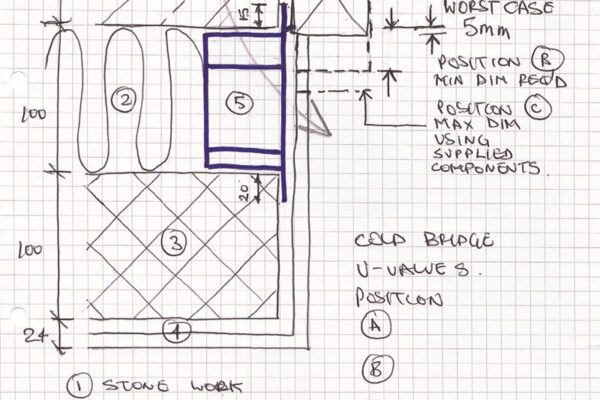 15
WORST CASE
5mm
POSITION B
MIN DIM REQ'D
POSITION C
MAX DIM
USING
SUPPLIED
COMPONENTS.
2
5
100
20
3
100
COLD BRIDGE
U-VALUES.
POSITION
A
B
4
24
1 STONE WORK